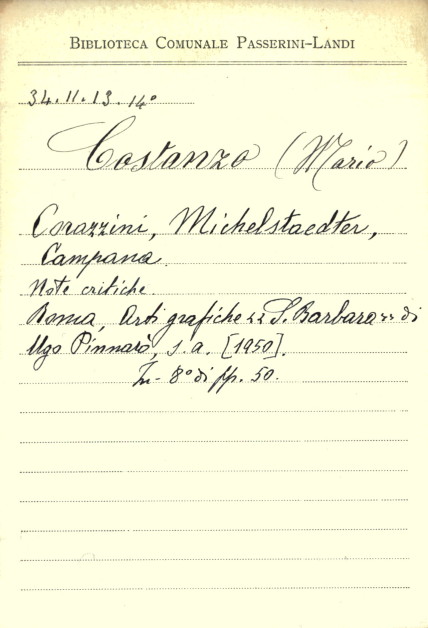 BIBLIOTECA COMUNALE PASSERINI-LANDI
34.11.13.14°
Costanzo (Mario)
Corazzini, Michelstaedter,
Campana.
Note critiche.
Roma, Arti grafiche << S. Barbara >> di
Ugo Pinnarò, s.a. [1950].
In-8° di pp. 50.